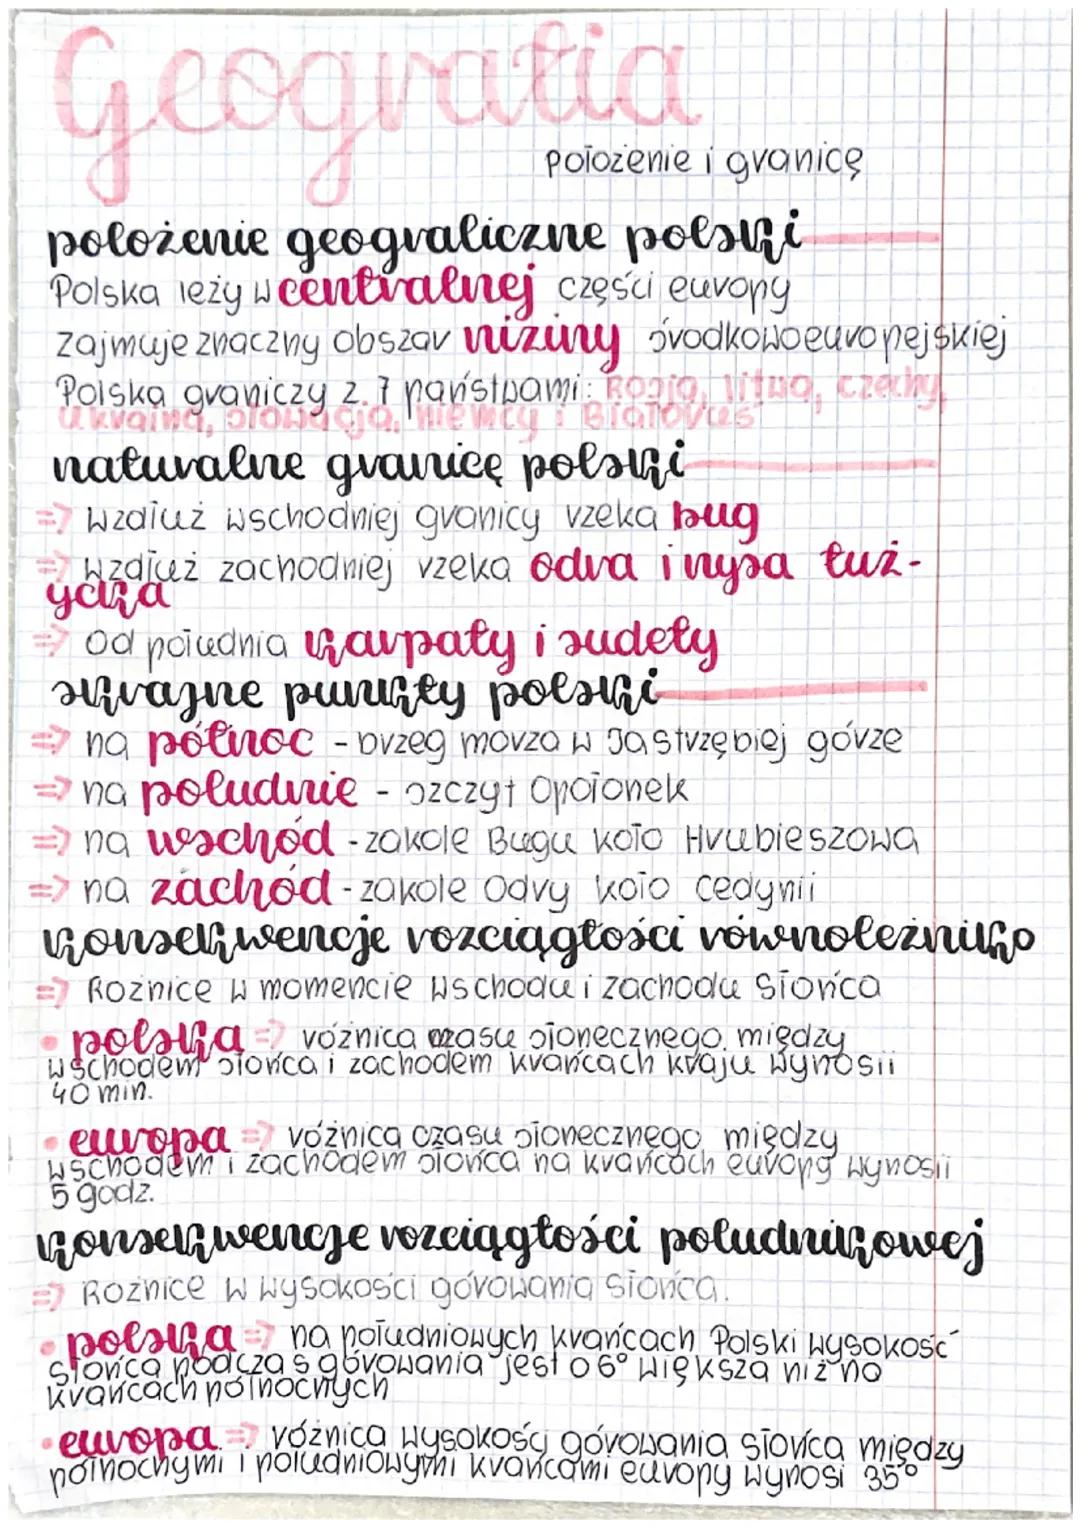 Geografia
położenie i granicę
położenie geograficzne polski
Polska leży w centralnej części europy
zajmuje znaczny obszar niziny środkowoeuropejskiej
Polska graniczy z 7 państwami: Rosja, litwa, czechy,
ukraina, słowacja, niemcy i Białoruś
naturalne granicę polski
⇒ wzdłuż wschodniej granicy rzeka bug
⇒ wzdłuż zachodniej rzeka odra i nysa łuż-
ycka
⇒ od południa karpaty i sudety
skrajne punkty polski
⇒ na północ - brzeg morza w Jastrzębiej górze
⇒ na południe - szczyt Opołonek
⇒ na wschód - zakole Bugu koło Hrubieszowa
⇒ na zachód - zakole Odry koło cedynii
konsekwencje rozciągłości równoleżniko
⇒ Rożnice w momencie wschodu i zachodu Słońca
• polska ⇒ różnica czasu słonecznego między
wschodem słońca i zachodem krańcach kraju wynosii
40 min.
• europa ⇒ różnica czasu słonecznego między
wschodem i zachodem słońca na krańcach europy wynosii
5 godz.
konsekwencje rozciągłości południkowej
⇒ Rożnice w wysokości górowania słońca.
• polska ⇒ na południowych krańcach Polski wysokość
słońca podczas górowania jest o 6° większa niż na
krańcach północnych
• europa ⇒ różnica wysokości górowania słońca między
północnymi i południowymi krańcami europy wynosi 35°